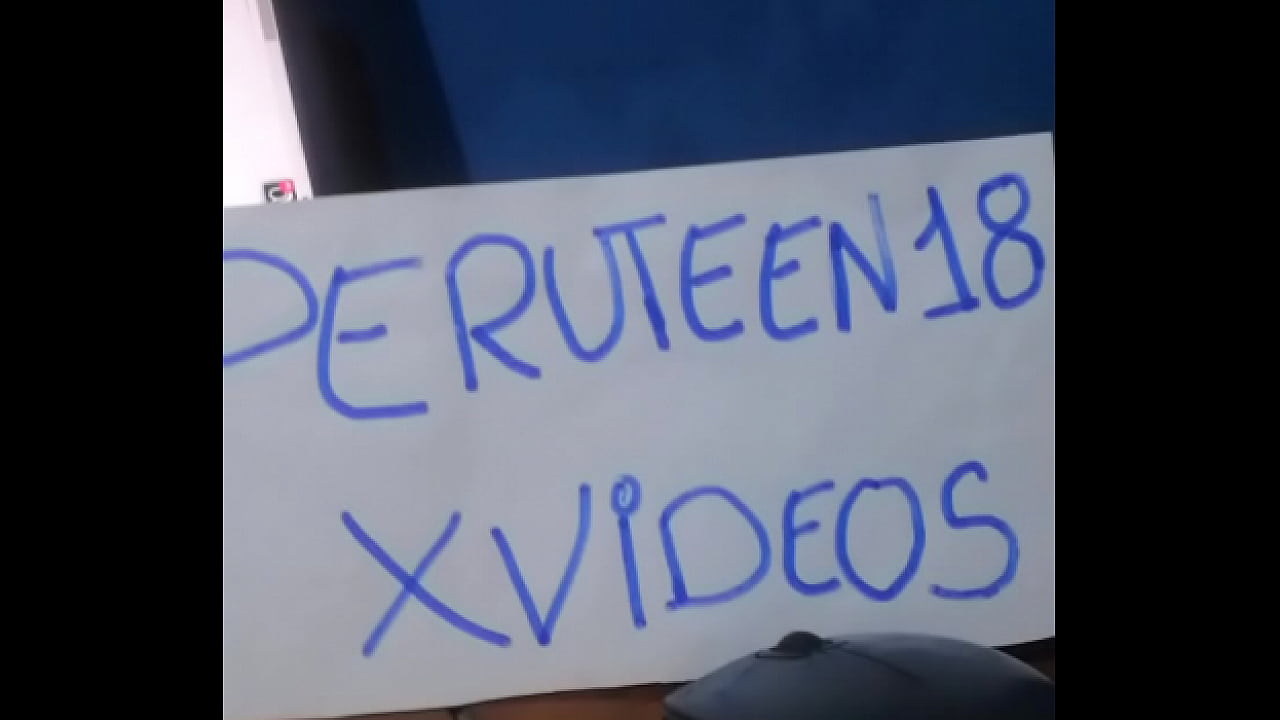 PERUTEEN18
XViDEOS